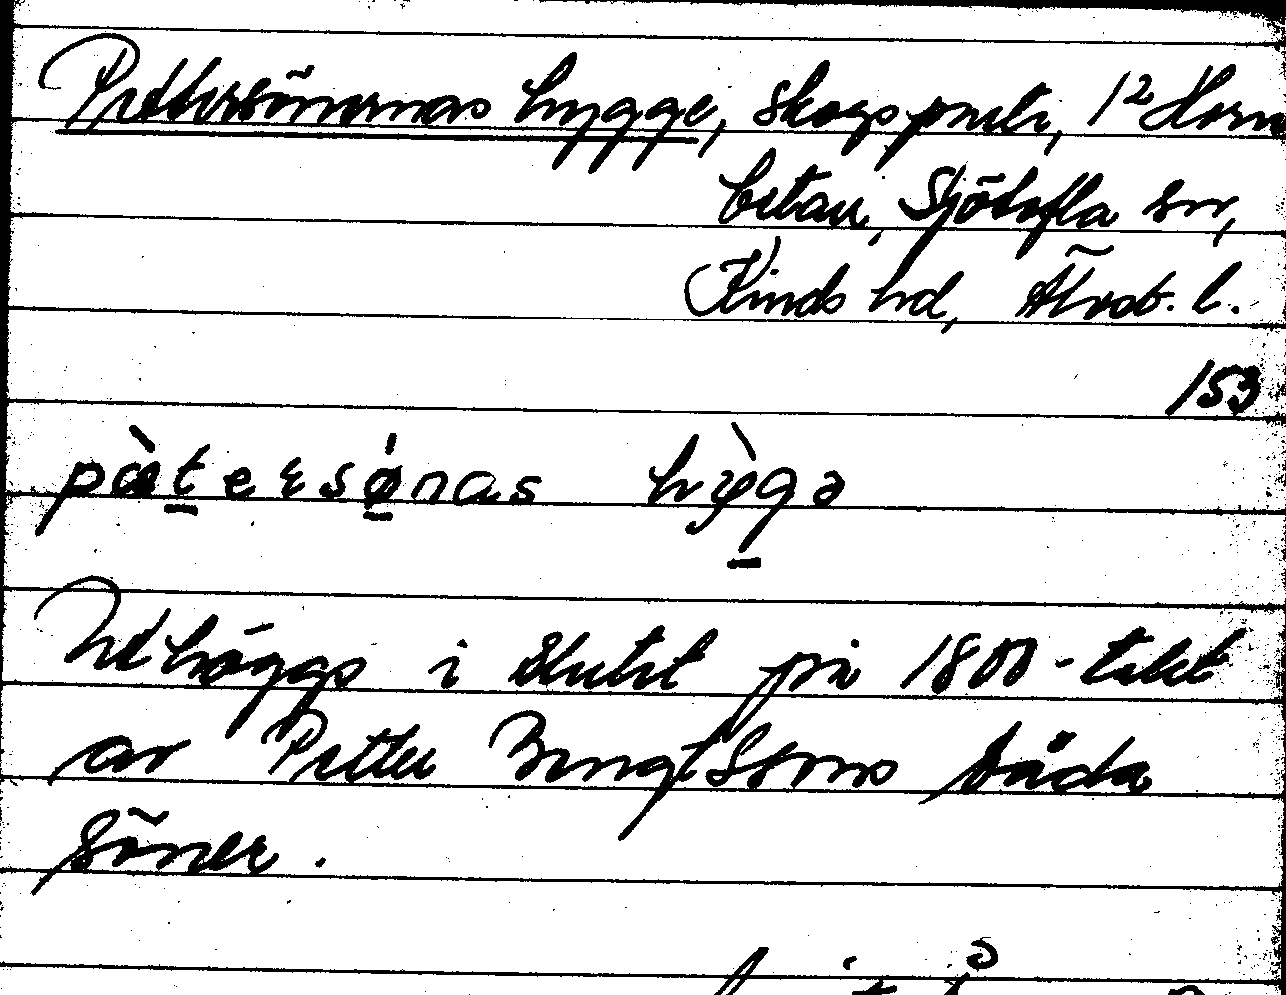 Pettersönernas hygge, Skogspunkt, 1² Horn
betan, Sjötofta sn,
Kinds hd, Älvsb. l.
153
pὰtersø̀nas hỳgə
Uthöggs i slutet på 1800-talet
av Petter Bengtssons båda
söner.